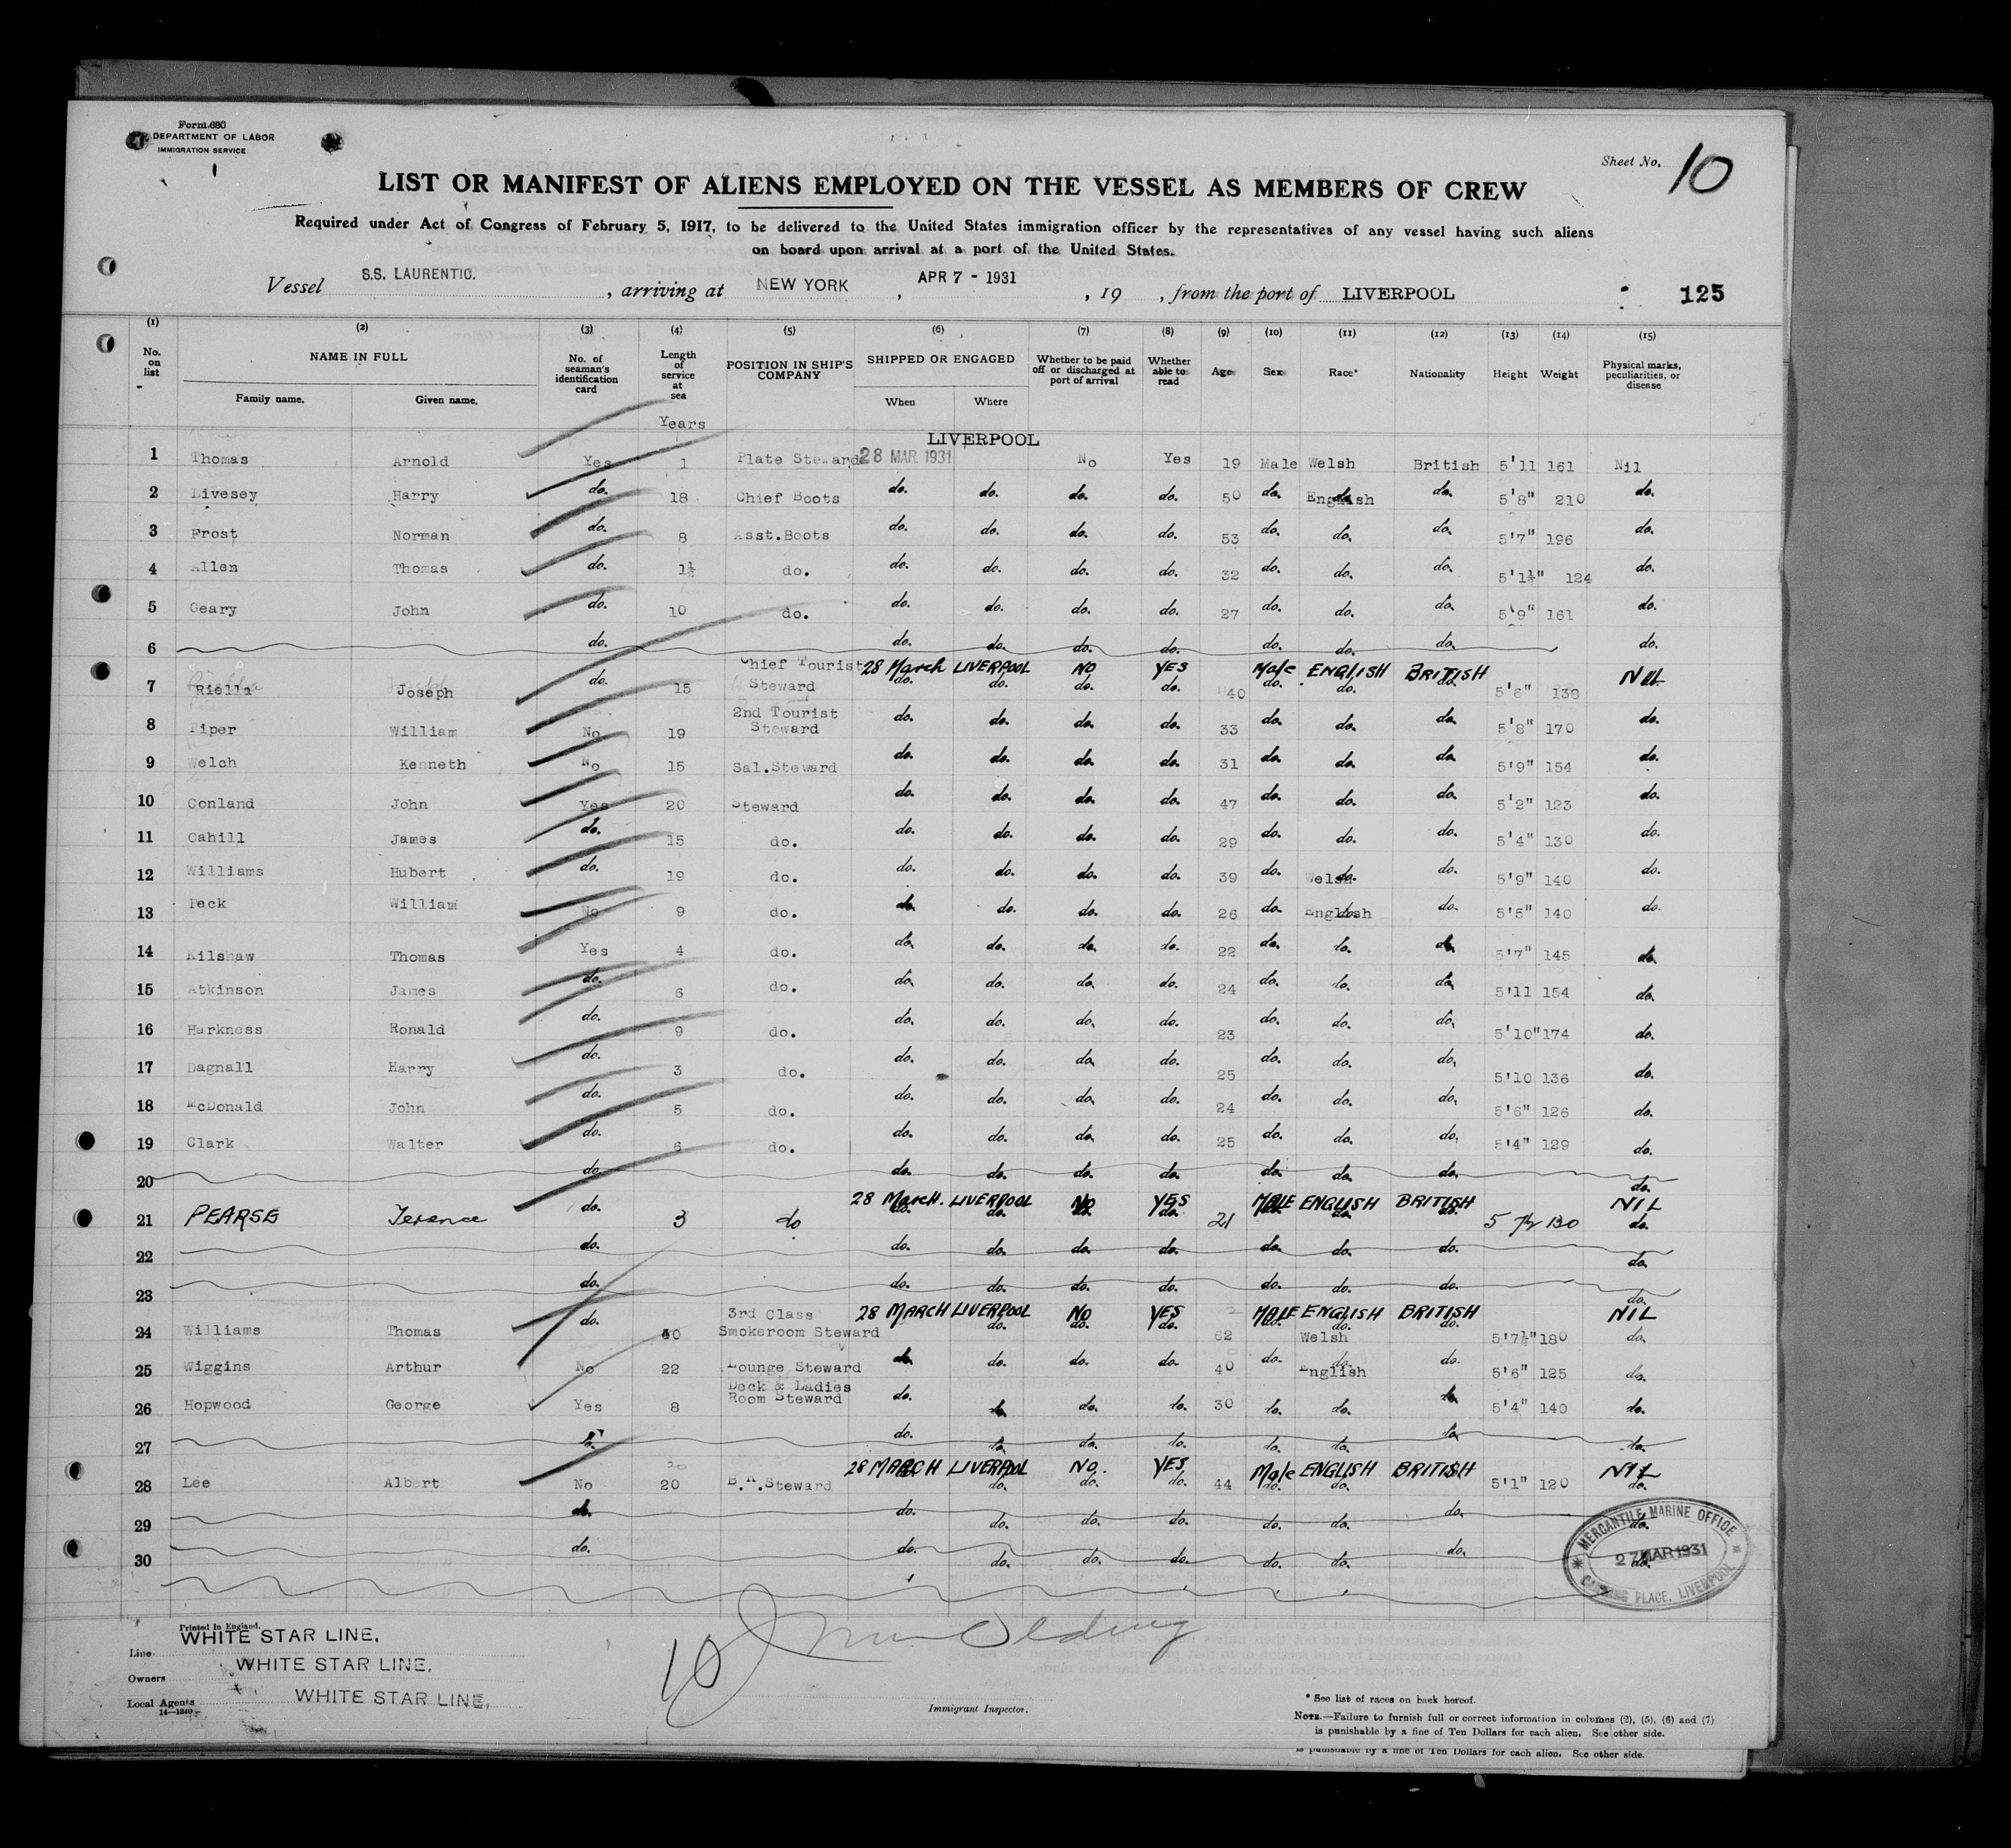 Form 680
DEPARTMENT OF LABOR
IMMIGRATION SERVICE
Sheet No. 10
LIST OR MANIFEST OF ALIENS EMPLOYED ON THE VESSEL AS MEMBERS OF CREW
Required under Act of Congress of February 5, 1917, to be delivered to the United States immigration officer by the representatives of any vessel having such aliens
on board upon arrival at a port of the United States.
Vessel S.S. LAURENTIC. , arriving at NEW YORK , APR 7 - 1931 , 19 , from the port of LIVERPOOL 125
(1) (2) (3) (4) (5) (6) (7) (8) (9) (10) (11) (12) (13) (14) (15)
No. on list NAME IN FULL No. of seaman's identification card Length of service at sea POSITION IN SHIP'S COMPANY SHIPPED OR ENGAGED Whether to be paid off or discharged at port of arrival Whether able to read Age Sex Race* Nationality Height Weight Physical marks, peculiarities, or disease
Family name. Given name. When Where
Years
LIVERPOOL
1 Thomas Arnold Yes 1 Plate Steward 28 MAR 1931 No Yes 19 Male Welsh British 5'11 161 Nil
2 Livesey Harry do. 18 Chief Boots do. do. do. do. 50 do. English do. 5'8" 210 do.
3 Frost Norman do. 8 Asst.Boots do. do. do. do. 53 do. do. do. 5'7" 196 do.
4 Allen Thomas do. 1½ do. do. do. do. do. 32 do. do. do. 5'1½" 124 do.
5 Geary John do. 10 do. do. do. do. do. 27 do. do. do. 5'9" 161 do.
6 do. do. do. do. do. do. do. do. do.
Chief Tourist 28 March LIVERPOOL NO YES Male ENGLISH BRITISH NIL
7 Riella Joseph do. 15 Steward do. do. do. do. 40 do. do. do. 5'6" 138
2nd Tourist
8 Piper William No 19 Steward do. do. do. do. 33 do. do. do. 5'8" 170 do.
9 Welch Kenneth No 15 Sal.Steward do. do. do. do. 31 do. do. do. 5'9" 154 do.
10 Conland John Yes 20 Steward do. do. do. do. 47 do. do. do. 5'2" 123 do.
11 Cahill James do. 15 do. do. do. do. do. 29 do. do. do. 5'4" 130 do.
12 Williams Hubert do. 19 do. do. do. do. do. 39 do. Welsh do. 5'9" 140 do.
13 Peck William No 9 do. do. do. do. do. 26 do. English do. 5'5" 140 do.
14 Kilshaw Thomas Yes 4 do. do. do. do. do. 22 do. do. do. 5'7" 145 do.
15 Atkinson James do. 6 do. do. do. do. do. 24 do. do. do. 5'11 154 do.
16 Harkness Ronald do. 9 do. do. do. do. do. 23 do. do. do. 5'10" 174 do.
17 Dagnall Harry do. 3 do. do. do. do. do. 25 do. do. do. 5'10 136 do.
18 McDonald John do. 5 do. do. do. do. do. 24 do. do. do. 5'6" 126 do.
19 Clark Walter do. 6 do. do. do. do. do. 25 do. do. do. 5'4" 129 do.
20 do. do. do. do. do. do. do. do. do.
28 March. LIVERPOOL NO YES MALE ENGLISH BRITISH NIL
21 PEARSE Terence do. 3 do do. do. do. do. 21 do. do. do. 5 7½ 130 do.
22 do. do. do. do. do. do. do. do. do.
23 do. do. do. do. do. do. do. do. do.
3rd Class 28 MARCH LIVERPOOL NO YES MALE ENGLISH BRITISH NIL
24 Williams Thomas do. 40 Smokeroom Steward do. do. do. 62 do. Welsh do. 5'7½" 180 do.
25 Wiggins Arthur No 22 Lounge Steward do. do. do. do. 40 do. English do. 5'6" 125 do.
Deck & Ladies
26 Hopwood George Yes 8 Room Steward do. do. do. do. 30 do. do. do. 5'4" 140 do.
27 do. do. do. do. do. do. do. do.
28 MARCH LIVERPOOL NO. YES Male ENGLISH BRITISH NIL
28 Lee Albert No 20 B.R.Steward do. do. do. 44 do. do. 5'1" 120 do.
29 do. do. do. do. do. do. do. do. do.
30 do. do. do. do. do. do. do. do. do.
MERCANTILE MARINE OFFICE
27 MAR 1931
CANNING PLACE, LIVERPOOL
Printed in England.
Line WHITE STAR LINE.
Owners WHITE STAR LINE.
Local Agents WHITE STAR LINE.
14—1240
10
Immigrant Inspector.
* See list of races on back hereof.
NOTE.—Failure to furnish full or correct information in columns (2), (5), (6) and (7)
is punishable by a fine of Ten Dollars for each alien. See other side.
is punishable by a fine of Ten Dollars for each alien. See other side.